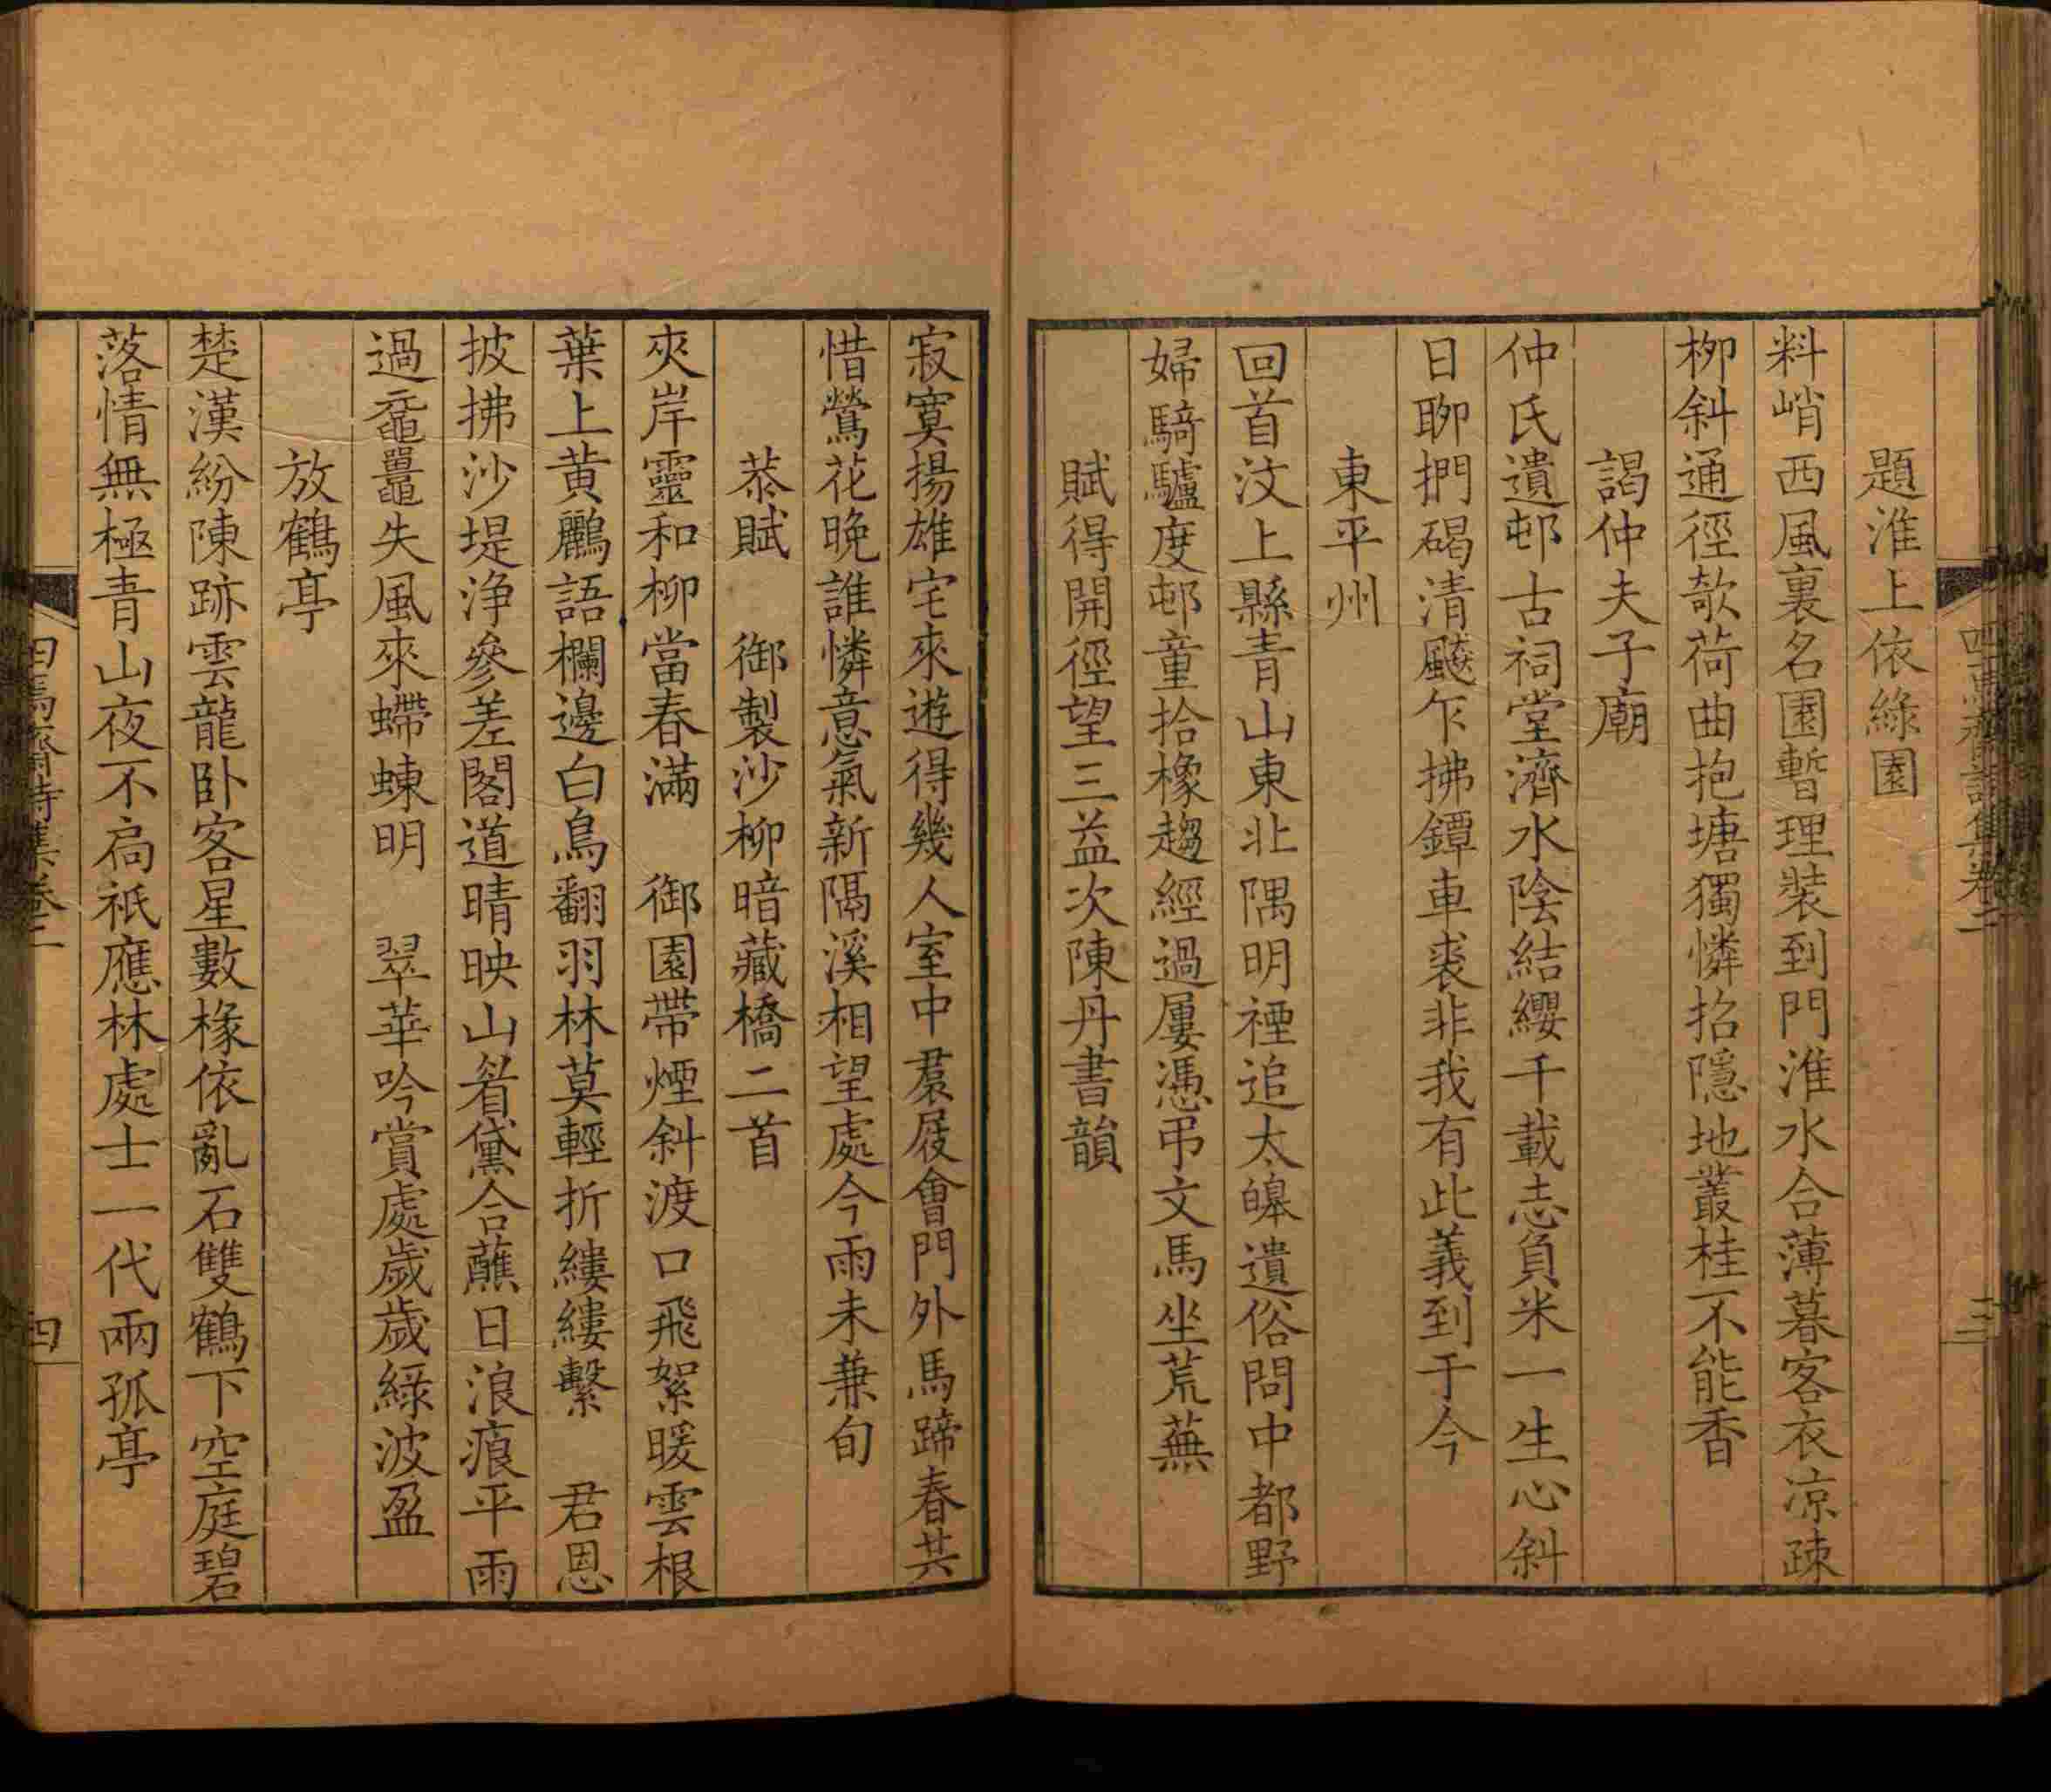 題淮上依綠園
料峭西風裏名園暫理裝到門淮水合薄暮客衣凉疎
栁斜通徑欹荷曲抱塘獨憐招隱地叢桂不能香
謁仲夫子廟
仲氏遺邨古祠堂濟水陰結纓千載志負米一生心斜
日聊捫碣清飈乍拂鐔車裘非我有此義到于今
東平州
回首汶上縣青山東北隅明禋追太皥遺俗問中都野
婦騎驢度邨童拾橡趨經過屢憑弔文馬坐荒蕪
賦得開徑望三益次陳丹書韻
寂寞揚雄宅來遊得幾人室中裠屐會門外馬蹄春共
惜鶯花晚誰憐意氣新隔溪相望處今雨未兼旬
恭賦　御製沙柳暗藏橋二首
夾岸靈和柳當春滿　御園帶煙斜渡口飛絮暖雲根
葉上黃鸝語欄邊白鳥翻羽林莫輕折縷縷繫　君恩
披拂沙堤淨參差閣道晴映山眉黛合蘸日浪痕平雨
過黿鼉失風來螮蝀明　翠華吟賞處歲歲綠波盈
放鶴亭
楚漢紛陳跡雲龍卧客星數椽依亂石雙鶴下空庭碧
落情無極青山夜不扃祇應林處士一代兩孤亭
四焉齋詩集卷二
四